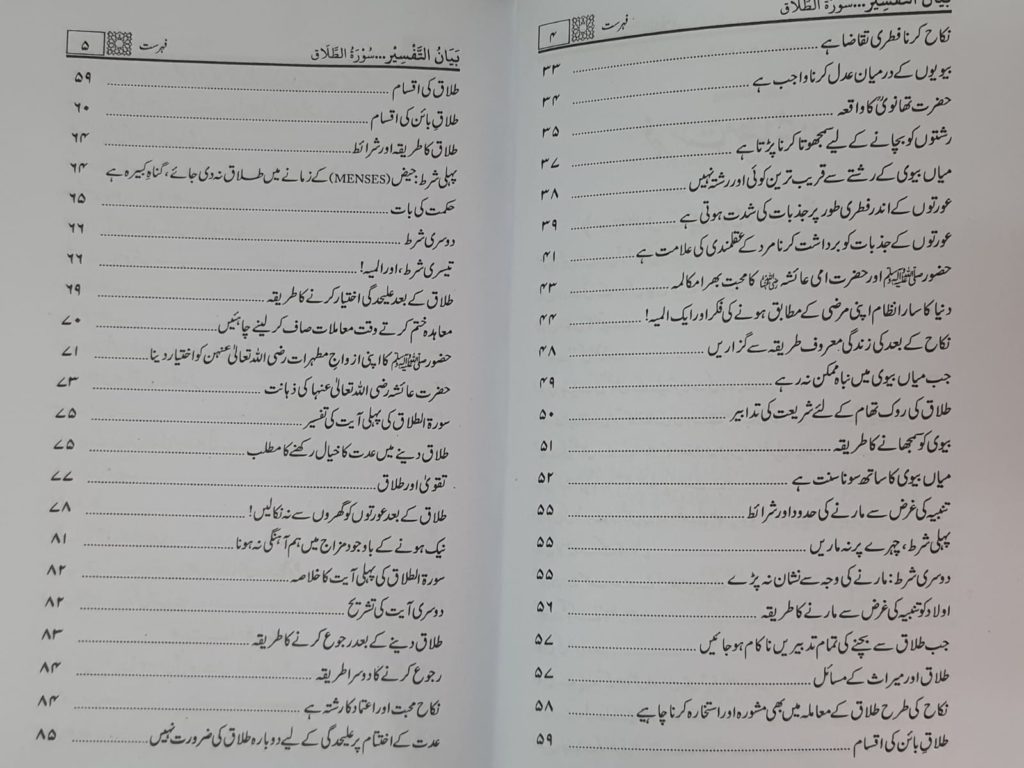 بَيَانُ التَّفْسِيْر...سُوْرَةُ الطَّلَاق فہرست ۴
نکاح کرنا فطری تقاضا ہے ۳۳
بیویوں کے درمیان عدل کرنا واجب ہے ۳۴
حضرت تھانویؒ کا واقعہ ۳۵
رشتوں کو بچانے کے لیے سمجھوتا کرنا پڑتا ہے ۳۷
میاں بیوی کے رشتے سے قریب ترین کوئی اور رشتہ نہیں ۳۸
عورتوں کے اندر فطری طور پر جذبات کی شدت ہوتی ہے ۳۹
عورتوں کے جذبات کو برداشت کرنا مرد کے عقلمندی کی علامت ہے ۴۱
حضور ﷺ اور حضرت امی عائشہ رضی اللہ عنہا کا محبت بھرا مکالمہ ۴۳
دنیا کا سارا نظام اپنی مرضی کے مطابق ہونے کی فکر اور ایک المیہ! ۴۴
نکاح کے بعد کی زندگی معروف طریقہ سے گزاریں ۴۸
جب میاں بیوی میں نباہ ممکن نہ رہے ۴۹
طلاق کی روک تھام کے لئے شریعت کی تدابیر ۵۰
بیوی کو سمجھانے کا طریقہ ۵۱
میاں بیوی کا ساتھ سونا سنت ہے ۵۲
تنبیہ کی غرض سے مارنے کی حدود اور شرائط ۵۵
پہلی شرط، چہرے پر نہ ماریں ۵۵
دوسری شرط: مارنے کی وجہ سے نشان نہ پڑے ۵۵
اولاد کو تنبیہ کی غرض سے مارنے کا طریقہ ۵۶
جب طلاق سے بچنے کی تمام تدبیریں ناکام ہوجائیں ۵۷
طلاق اور میراث کے مسائل ۵۷
نکاح کی طرح طلاق کے معاملہ میں بھی مشورہ اور استخارہ کرنا چاہیے ۵۸
طلاقِ بائن کی اقسام ۵۹
بَيَانُ التَّفْسِيْر...سُوْرَةُ الطَّلَاق فہرست ۵
طلاق کی اقسام ۵۹
طلاقِ بائن کی اقسام ۶۰
طلاق کا طریقہ اور شرائط ۶۴
پہلی شرط: حیض (MENSES) کے زمانے میں طلاق نہ دی جائے، گناہِ کبیرہ ہے ۶۴
حکمت کی بات ۶۵
دوسری شرط ۶۶
تیسری شرط، اور المیہ! ۶۶
طلاق کے بعد علیحدگی اختیار کرنے کا طریقہ ۶۹
معاہدہ ختم کرتے وقت معاملات صاف کر لینے چاہئیں ۷۰
حضور ﷺ کا اپنی ازواجِ مطہرات رضی اللہ تعالیٰ عنہن کو اختیار دینا ۷۱
حضرت عائشہ رضی اللہ تعالیٰ عنہا کی ذہانت ۷۳
سورۃ الطلاق کی پہلی آیت کی تفسیر ۷۵
طلاق دینے میں عدت کا خیال رکھنے کا مطلب ۷۵
تقویٰ اور طلاق ۷۷
طلاق کے بعد عورتوں کو گھروں سے نہ نکالیں! ۷۸
نیک ہونے کے باوجود مزاج میں ہم آہنگی نہ ہونا ۸۱
سورۃ الطلاق کی پہلی آیت کا خلاصہ ۸۲
دوسری آیت کی تشریح ۸۲
طلاق دینے کے بعد رجوع کرنے کا طریقہ ۸۳
رجوع کرنے کا دوسرا طریقہ ۸۴
نکاح محبت اور اعتماد کا رشتہ ہے ۸۴
عدت کے اختتام پر علیحدگی کے لیے دوبارہ طلاق کی ضرورت نہیں ۸۵